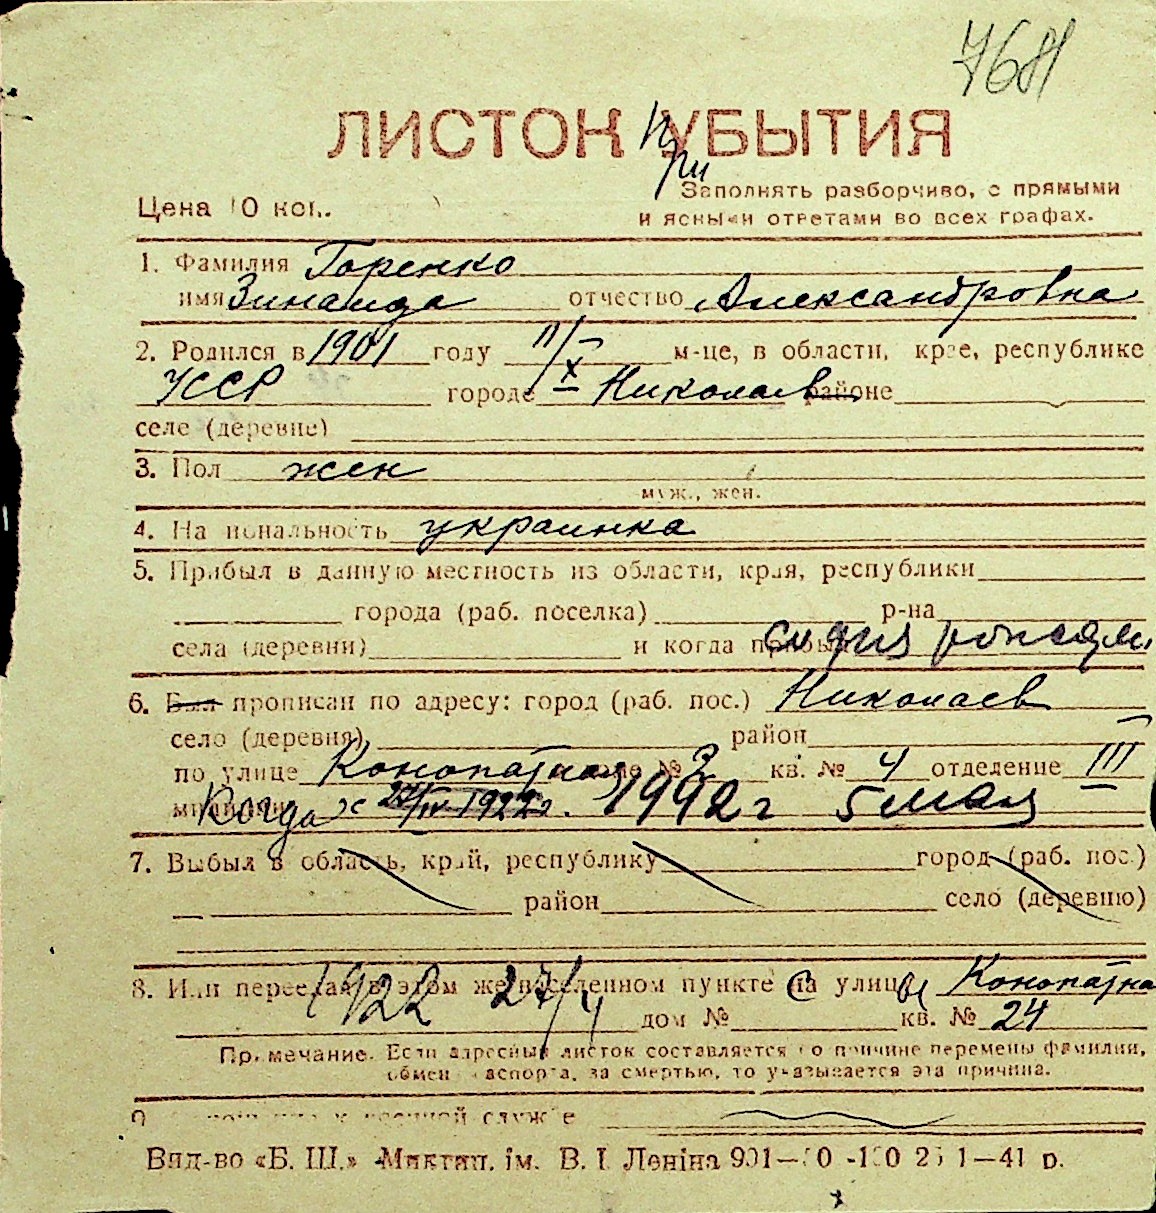 7681
ЛИСТОК УБЫТИЯ
при
Цена 10 коп.
Заполнять разборчиво, с прямыми
и ясными ответами во всех графах.
1. Фамилия Горенко
имя Зинаида отчество Александровна
2. Родился в 1901 году 11/X м-це, в области, крае, республике
УССР городе Николаев районе
селе (деревне)
3. Пол жен
муж., жен.
4. Национальность украинка
5. Прибыл в данную местность из области, края, республики
города (раб. поселка) р-на
села (деревни) и когда прибыл
6. Был прописан по адресу: город (раб. пос.) Николаев
село (деревня) район
по улице Конопатная № 3 кв. № 4 отделение III
милиции Когда 1922 г 5 мая
7. Выбыл в область, край, республику город (раб. пос.)
район село (деревню)
8. Или переехал в этом же населенном пункте на улицу Конопатна
1922 27/4 дом № кв. № 24
Примечание. Если адресный листок составляется по причине перемены фамилии,
обмен паспорта, за смертью, то указывается эта причина.
9 к военной службе
Вид-во «Б. Ш.» Миктип. ім. В. І. Леніна 901